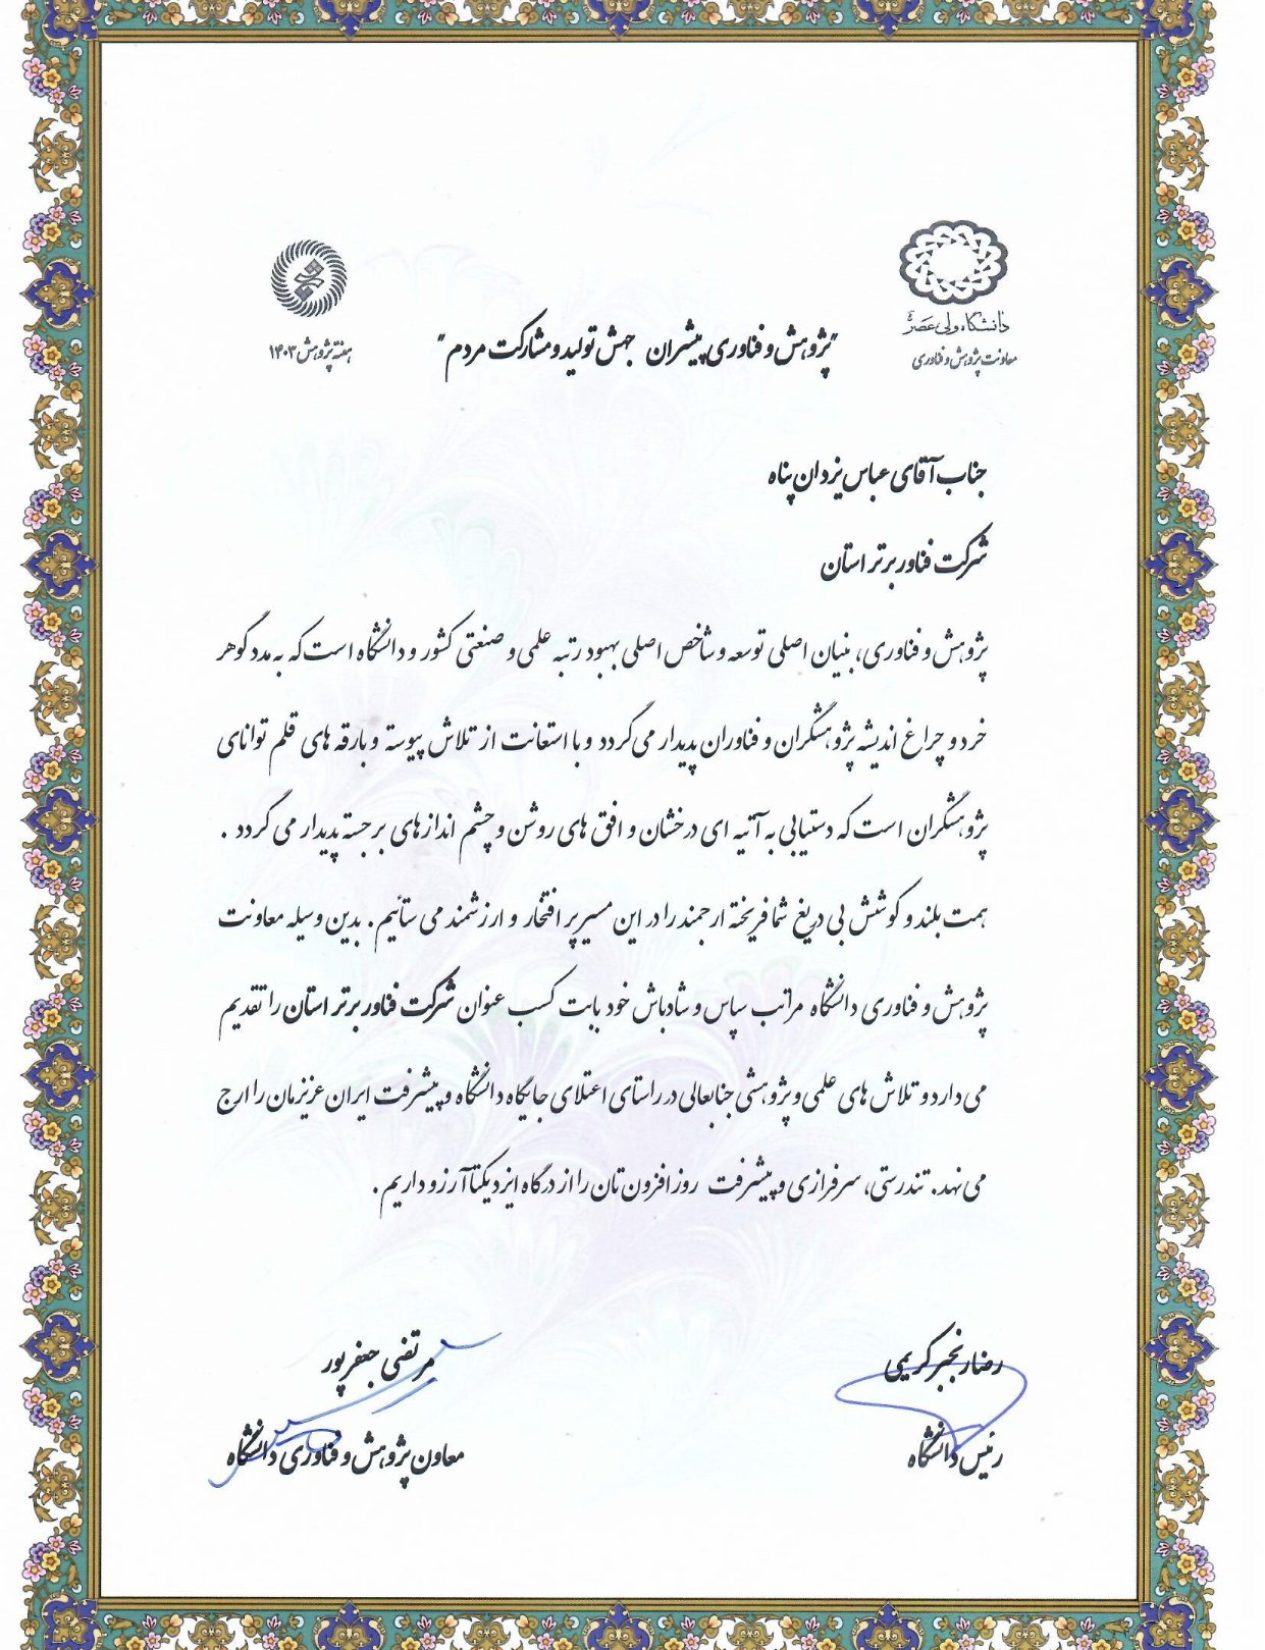 دانشگاه ولی عصر
معاونت پژوهش و فناوری
"پژوهش و فناوری پیشران جهش تولید و مشارکت مردم"
هفته پژوهش ۱۴۰۳
جناب آقای عباس یزدان پناه
شرکت فناور برتر استان
پژوهش و فناوری، بنیان اصلی توسعه و شاخص اصلی بهبود رتبه علمی و صنعتی کشور و دانشگاه است که به مدد گوهر
خرد و چراغ اندیشه پژوهشگران و فناوران پدیدار می گردد و با استعانت از تلاش پیوسته و بارقه های قلم توانای
پژوهشگران است که دستیابی به آتیه ای درخشان و افق های روشن و چشم اندازهای برجسته پدیدار می گردد .
همت بلند و کوشش بی دریغ شما فریخته ارجمند را در این مسیر پر افتخار و ارزشمند می ستائیم. بدین وسیله معاونت
پژوهش و فناوری دانشگاه مراتب سپاس و شادباش خود بابت کسب عنوان شرکت فناور برتر استان را تقدیم
می دارد و تلاش های علمی و پژوهشی جنابعالی در راستای اعتلای جایگاه دانشگاه و پیشرفت ایران عزیزمان را ارج
می نهد. تندرستی، سرفرازی و پیشرفت روز افزون تان را از درگاه ایزد یکتا آرزو داریم.
رضا رنجبر کریمی
رئیس دانشگاه
مرتضی جعفرپور
معاون پژوهش و فناوری دانشگاه